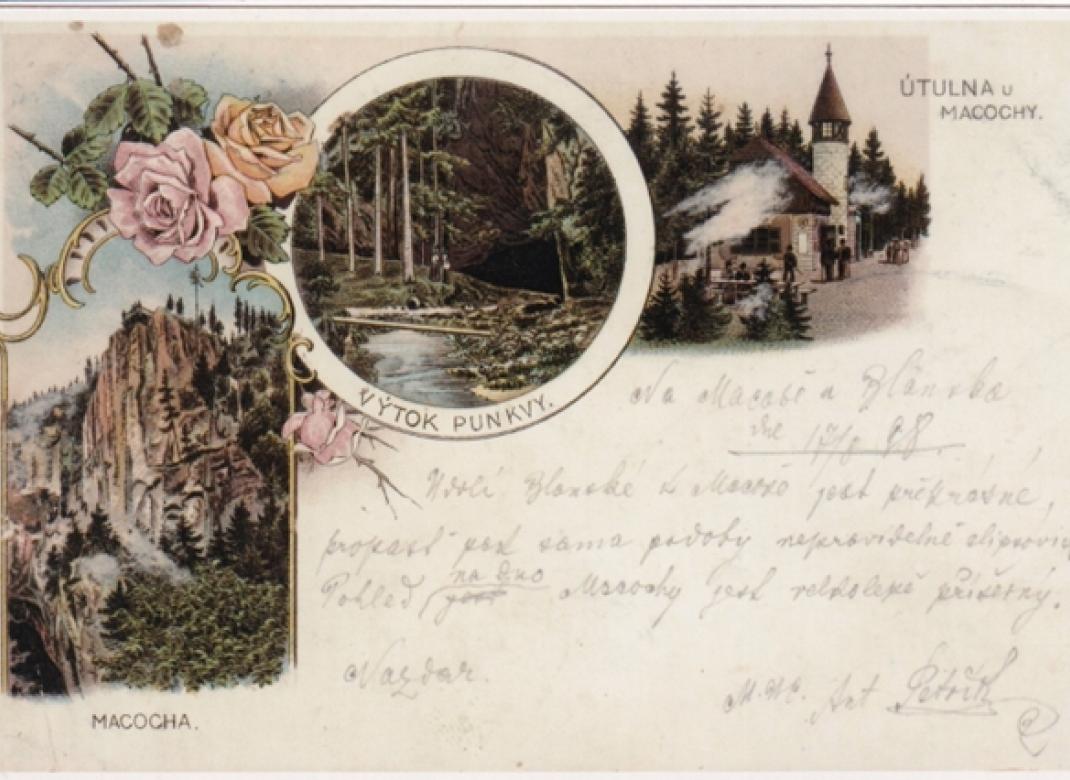 ÚTULNA U
MACOCHY.
VÝTOK PUNKVY.
Na Macoše u Blanska
dne 17/8 98.
Údolí Blanské k Macoše jest překrásné,
propast pak sama podoby nepravidelné
na dno
Pohled Macochy jest velkolepě příšerný.
Nazdar.
Ant Petřík
MACOCHA.